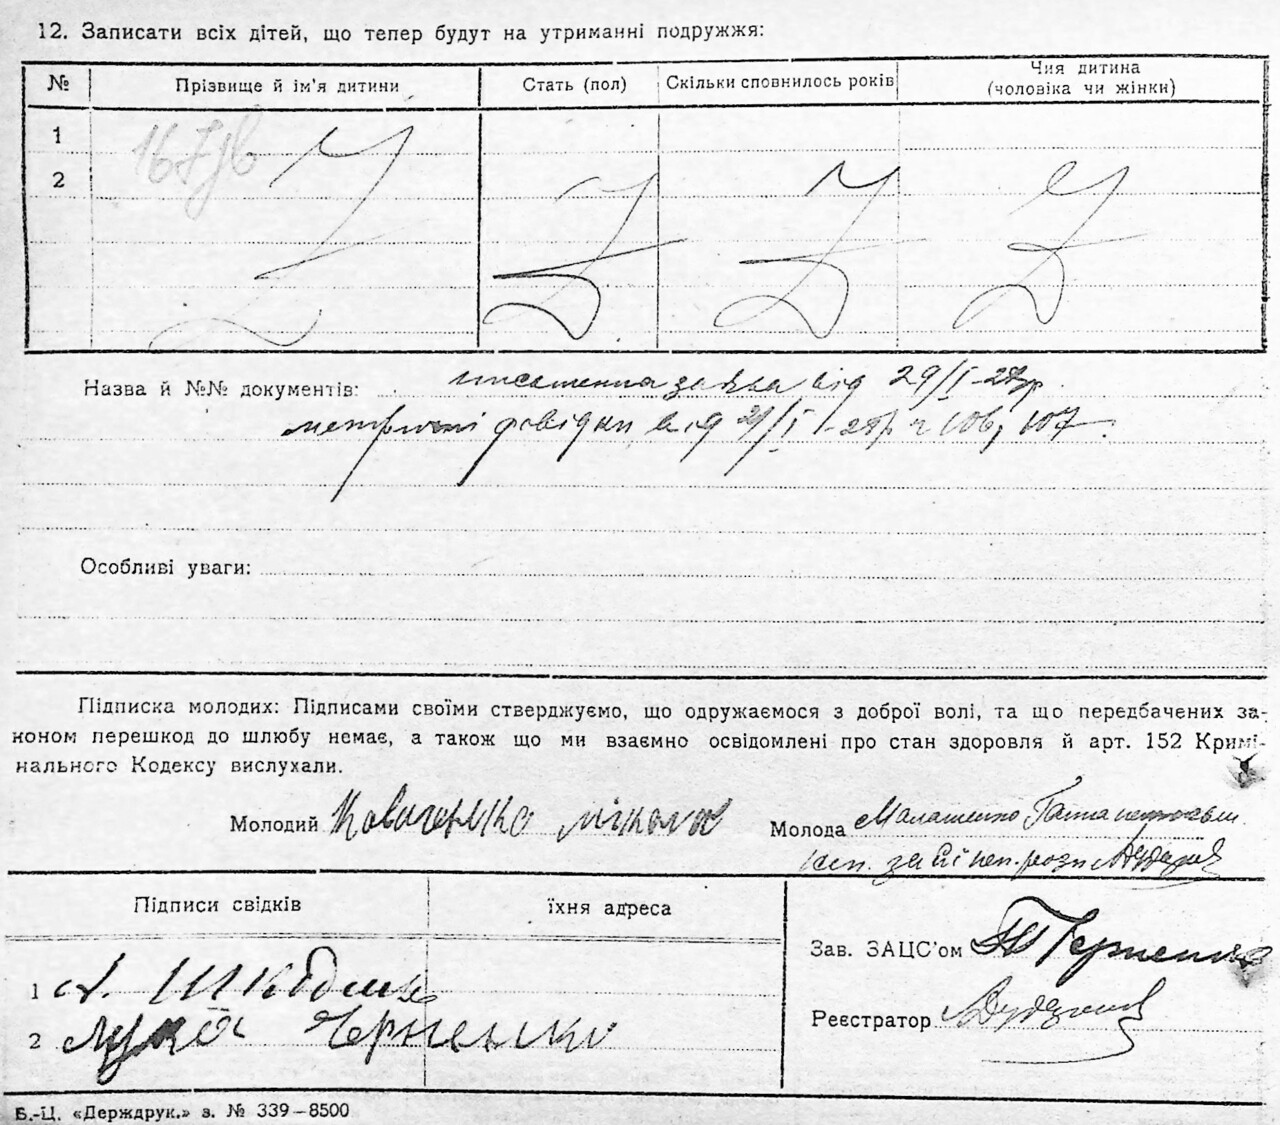 12. Записати всіх дітей, що тепер будут на утриманні подружжя:
№ Прізвище й ім'я дитини Стать (пол) Скільки сповнилось років Чия дитина (чоловіка чи жінки)
1
2
Назва й №№ документів: письменна заява від 29/I-28 р.
метричні довідки від 29/I-28 р ч 106, 107.
Особливі уваги:
Підписка молодих: Підписами своїми стверджуємо, що одружаємося з доброї волі, та що передбачених за-
коном перешкод до шлюбу немає, а також що ми взаємно освідомлені про стан здоровля й арт. 152 Кримі-
нального Кодексу вислухали.
Молодий Микола Молода Малашенко Ганна
за
Підписи свідків їхня адреса
Зав. ЗАЦС'ом
1
2 Черненко
Реєстратор
Б.-Ц. «Держдрук.» з. № 339–8500